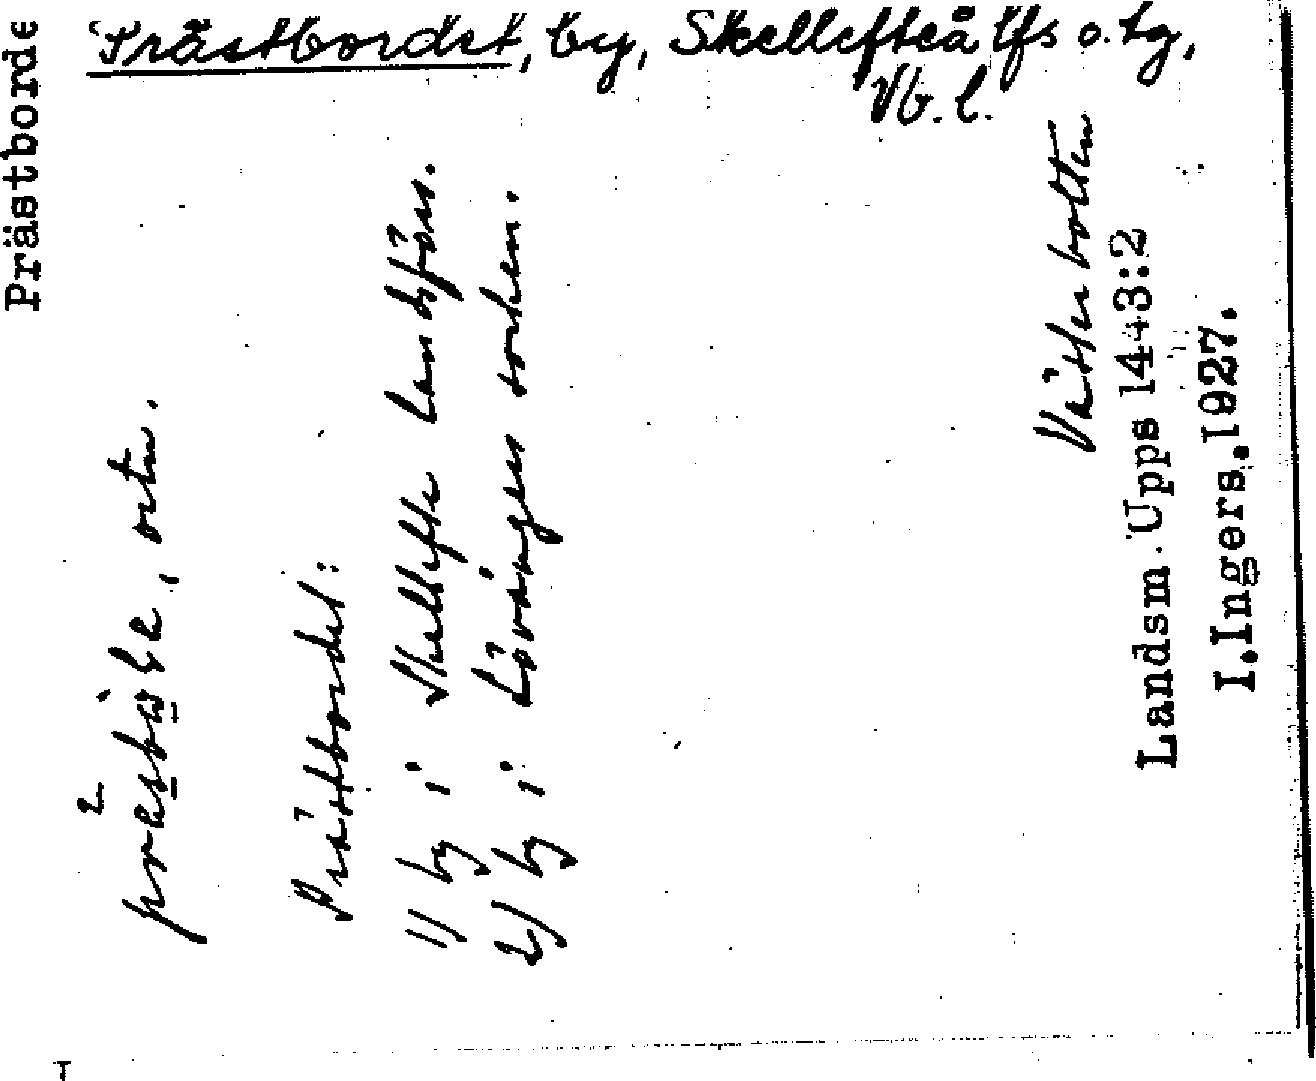 Prästbordet, by, Skellefteå lfs o. tg,
Vb. l.
Prästborde
ortn.
Prästbordet:
1) by i Skellefte landsförs.
2) by i Lövångers socken.
Västerbotten
Landsm. Upps 1443:2
I. Ingers, 1927.
T